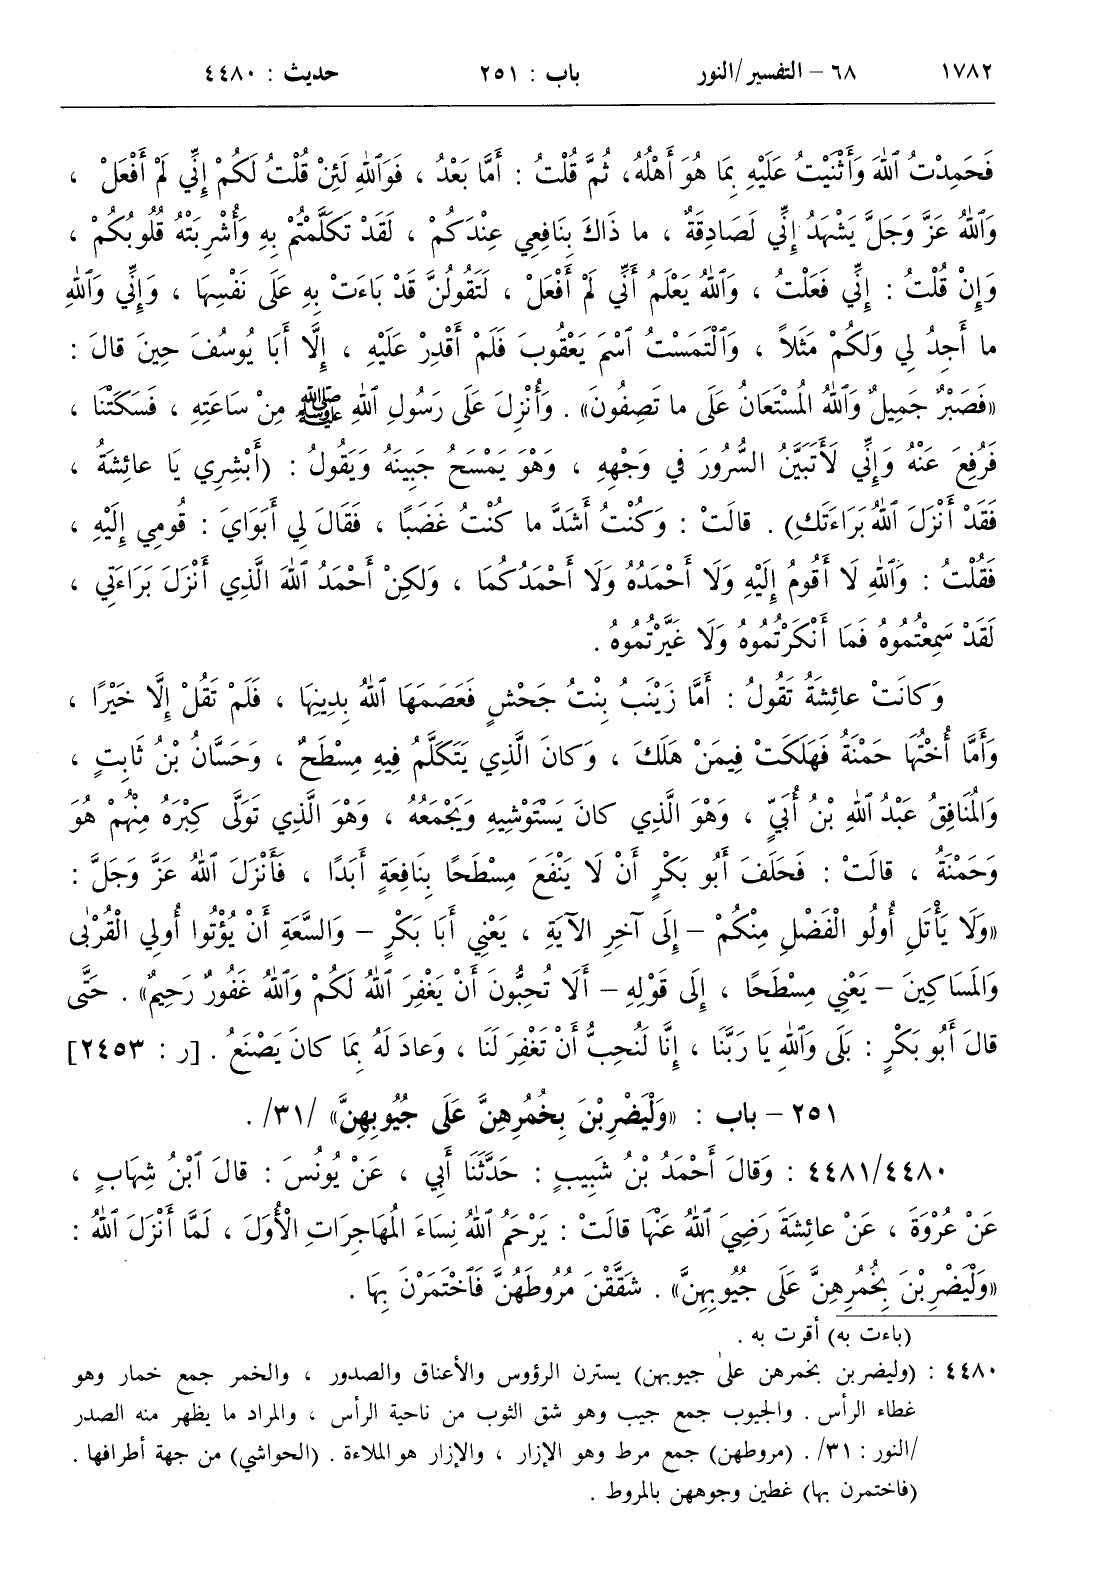 ١٧٨٢ ٦٨ – التفسير/النور باب : ٢٥١ حديث : ٤٤٨٠
فَحَمِدْتُ ٱللهَ وَأَثْنَيْتُ عَلَيْهِ بِمَا هُوَ أَهْلُهُ، ثُمَّ قُلْتُ : أَمَّا بَعْدُ ، فَوَٱللهِ لَئِنْ قُلْتُ لَكُمْ إِنِّي لَمْ أَفْعَلْ ،
وَٱللهُ عَزَّ وَجَلَّ يَشْهَدُ إِنِّي لَصَادِقَةٌ ، ما ذَاكَ بِنَافِعِي عِنْدَكُمْ ، لَقَدْ تَكَلَّمْتُمْ بِهِ وَأُشْرِبَتْهُ قُلُوبُكُمْ ،
وَإِنْ قُلْتُ : إِنِّي فَعَلْتُ ، وَٱللهُ يَعْلَمُ أَنِّي لَمْ أَفْعَلْ ، لَتَقُولُنَّ قَدْ بَاءَتْ بِهِ عَلَى نَفْسِهَا ، وَإِنِّي وَٱللهِ
ما أَجِدُ لِي وَلَكُمْ مَثَلاً ، وَٱلْتَمَسْتُ ٱسْمَ يَعْقُوبَ فَلَمْ أَقْدِرْ عَلَيْهِ ، إِلَّا أَبَا يُوسُفَ حِينَ قالَ :
«فَصَبْرٌ جَمِيلٌ وَٱللهُ الْمُسْتَعَانُ عَلَى ما تَصِفُونَ» . وَأُنْزِلَ عَلَى رَسُولِ ٱللهِ ﷺ مِنْ سَاعَتِهِ ، فَسَكَتْنَا ،
فَرُفِعَ عَنْهُ وَإِنِّي لَأَتَبَيَّنُ السُّرُورَ في وَجْهِهِ ، وَهْوَ يَمْسَحُ جَبِينَهُ وَيَقُولُ : (أَبْشِرِي يَا عائِشَةُ ،
فَقَدْ أَنْزَلَ ٱللهُ بَرَاءَتَكِ) . قالَتْ : وَكُنْتُ أَشَدَّ ما كُنْتُ غَضَبًا ، فَقَالَ لِي أَبَوَايَ : قُومِي إِلَيْهِ ،
فَقُلْتُ : وَٱللهِ لَا أَقُومُ إِلَيْهِ وَلَا أَحْمَدُهُ وَلَا أَحْمَدُكُمَا ، وَلٰكِنْ أَحْمَدُ ٱللهَ الَّذِي أَنْزَلَ بَرَاءَتِي ،
لَقَدْ سَمِعْتُمُوهُ فَمَا أَنْكَرْتُمُوهُ وَلَا غَيَّرْتُمُوهُ .
وَكانَتْ عائِشَةُ تَقُولُ : أَمَّا زَيْنَبُ بِنْتُ جَحْشٍ فَعَصَمَهَا ٱللهُ بِدِينِهَا ، فَلَمْ تَقُلْ إِلَّا خَيْرًا ،
وَأَمَّا أُخْتُهَا حَمْنَةُ فَهَلَكَتْ فِيمَنْ هَلَكَ ، وَكانَ الَّذِي يَتَكَلَّمُ فِيهِ مِسْطَحٌ ، وَحَسَّانُ بْنُ ثَابِتٍ ،
وَالْمُنَافِقُ عَبْدُ ٱللهِ بْنُ أُبَيٍّ ، وَهْوَ الَّذِي كانَ يَسْتَوْشِيهِ وَيَجْمَعُهُ ، وَهْوَ الَّذِي تَوَلَّى كِبْرَهُ مِنْهُمْ هُوَ
وَحَمْنَةُ ، قالَتْ : فَحَلَفَ أَبُو بَكْرٍ أَنْ لَا يَنْفَعَ مِسْطَحًا بِنَافِعَةٍ أَبَدًا ، فَأَنْزَلَ ٱللهُ عَزَّ وَجَلَّ :
«وَلَا يَأْتَلِ أُولُو الْفَضْلِ مِنْكُمْ – إِلَى آخِرِ الآيَةِ ، يَعْنِي أَبَا بَكْرٍ – وَالسَّعَةِ أَنْ يُؤْتُوا أُولِي الْقُرْبَى
وَالْمَسَاكِينَ – يَعْنِي مِسْطَحًا ، إِلَى قَوْلِهِ – أَلَا تُحِبُّونَ أَنْ يَغْفِرَ ٱللهُ لَكُمْ وَٱللهُ غَفُورٌ رَحِيمٌ» . حَتَّى
قالَ أَبُو بَكْرٍ : بَلَى وَٱللهِ يَا رَبَّنَا ، إِنَّا لَنُحِبُّ أَنْ تَغْفِرَ لَنَا ، وَعادَ لَهُ بِمَا كانَ يَصْنَعُ . [ر : ٢٤٥٣]
٢٥١ – باب : «وَلْيَضْرِبْنَ بِخُمُرِهِنَّ عَلَى جُيُوبِهِنَّ» /٣١/ .
٤٤٨١/٤٤٨٠ : وَقالَ أَحْمَدُ بْنُ شَبِيبٍ : حَدَّثَنَا أَبِي ، عَنْ يُونُسَ : قالَ ٱبْنُ شِهَابٍ ،
عَنْ عُرْوَةَ ، عَنْ عائِشَةَ رَضِيَ ٱللهُ عَنْهَا قالَتْ : يَرْحَمُ ٱللهُ نِسَاءَ الْمُهَاجِرَاتِ الْأُوَلَ ، لَمَّا أَنْزَلَ ٱللهُ :
«وَلْيَضْرِبْنَ بِخُمُرِهِنَّ عَلَى جُيُوبِهِنَّ» . شَقَّقْنَ مُرُوطَهُنَّ فَٱخْتَمَرْنَ بِهَا .
(باءت به) أقرت به .
٤٤٨٠ : (وليضربن بخمرهن على جيوبهن) يسترن الرؤوس والأعناق والصدور ، والخمر جمع خمار وهو
غطاء الرأس . والجيوب جمع جيب وهو شق الثوب من ناحية الرأس ، والمراد ما يظهر منه الصدر
/النور : ٣١/ . (مروطهن) جمع مرط وهو الإزار ، والإزار هو الملاءة . (الحواشي) من جهة أطرافها .
(فاختمرن بها) غطين وجوههن بالمروط .